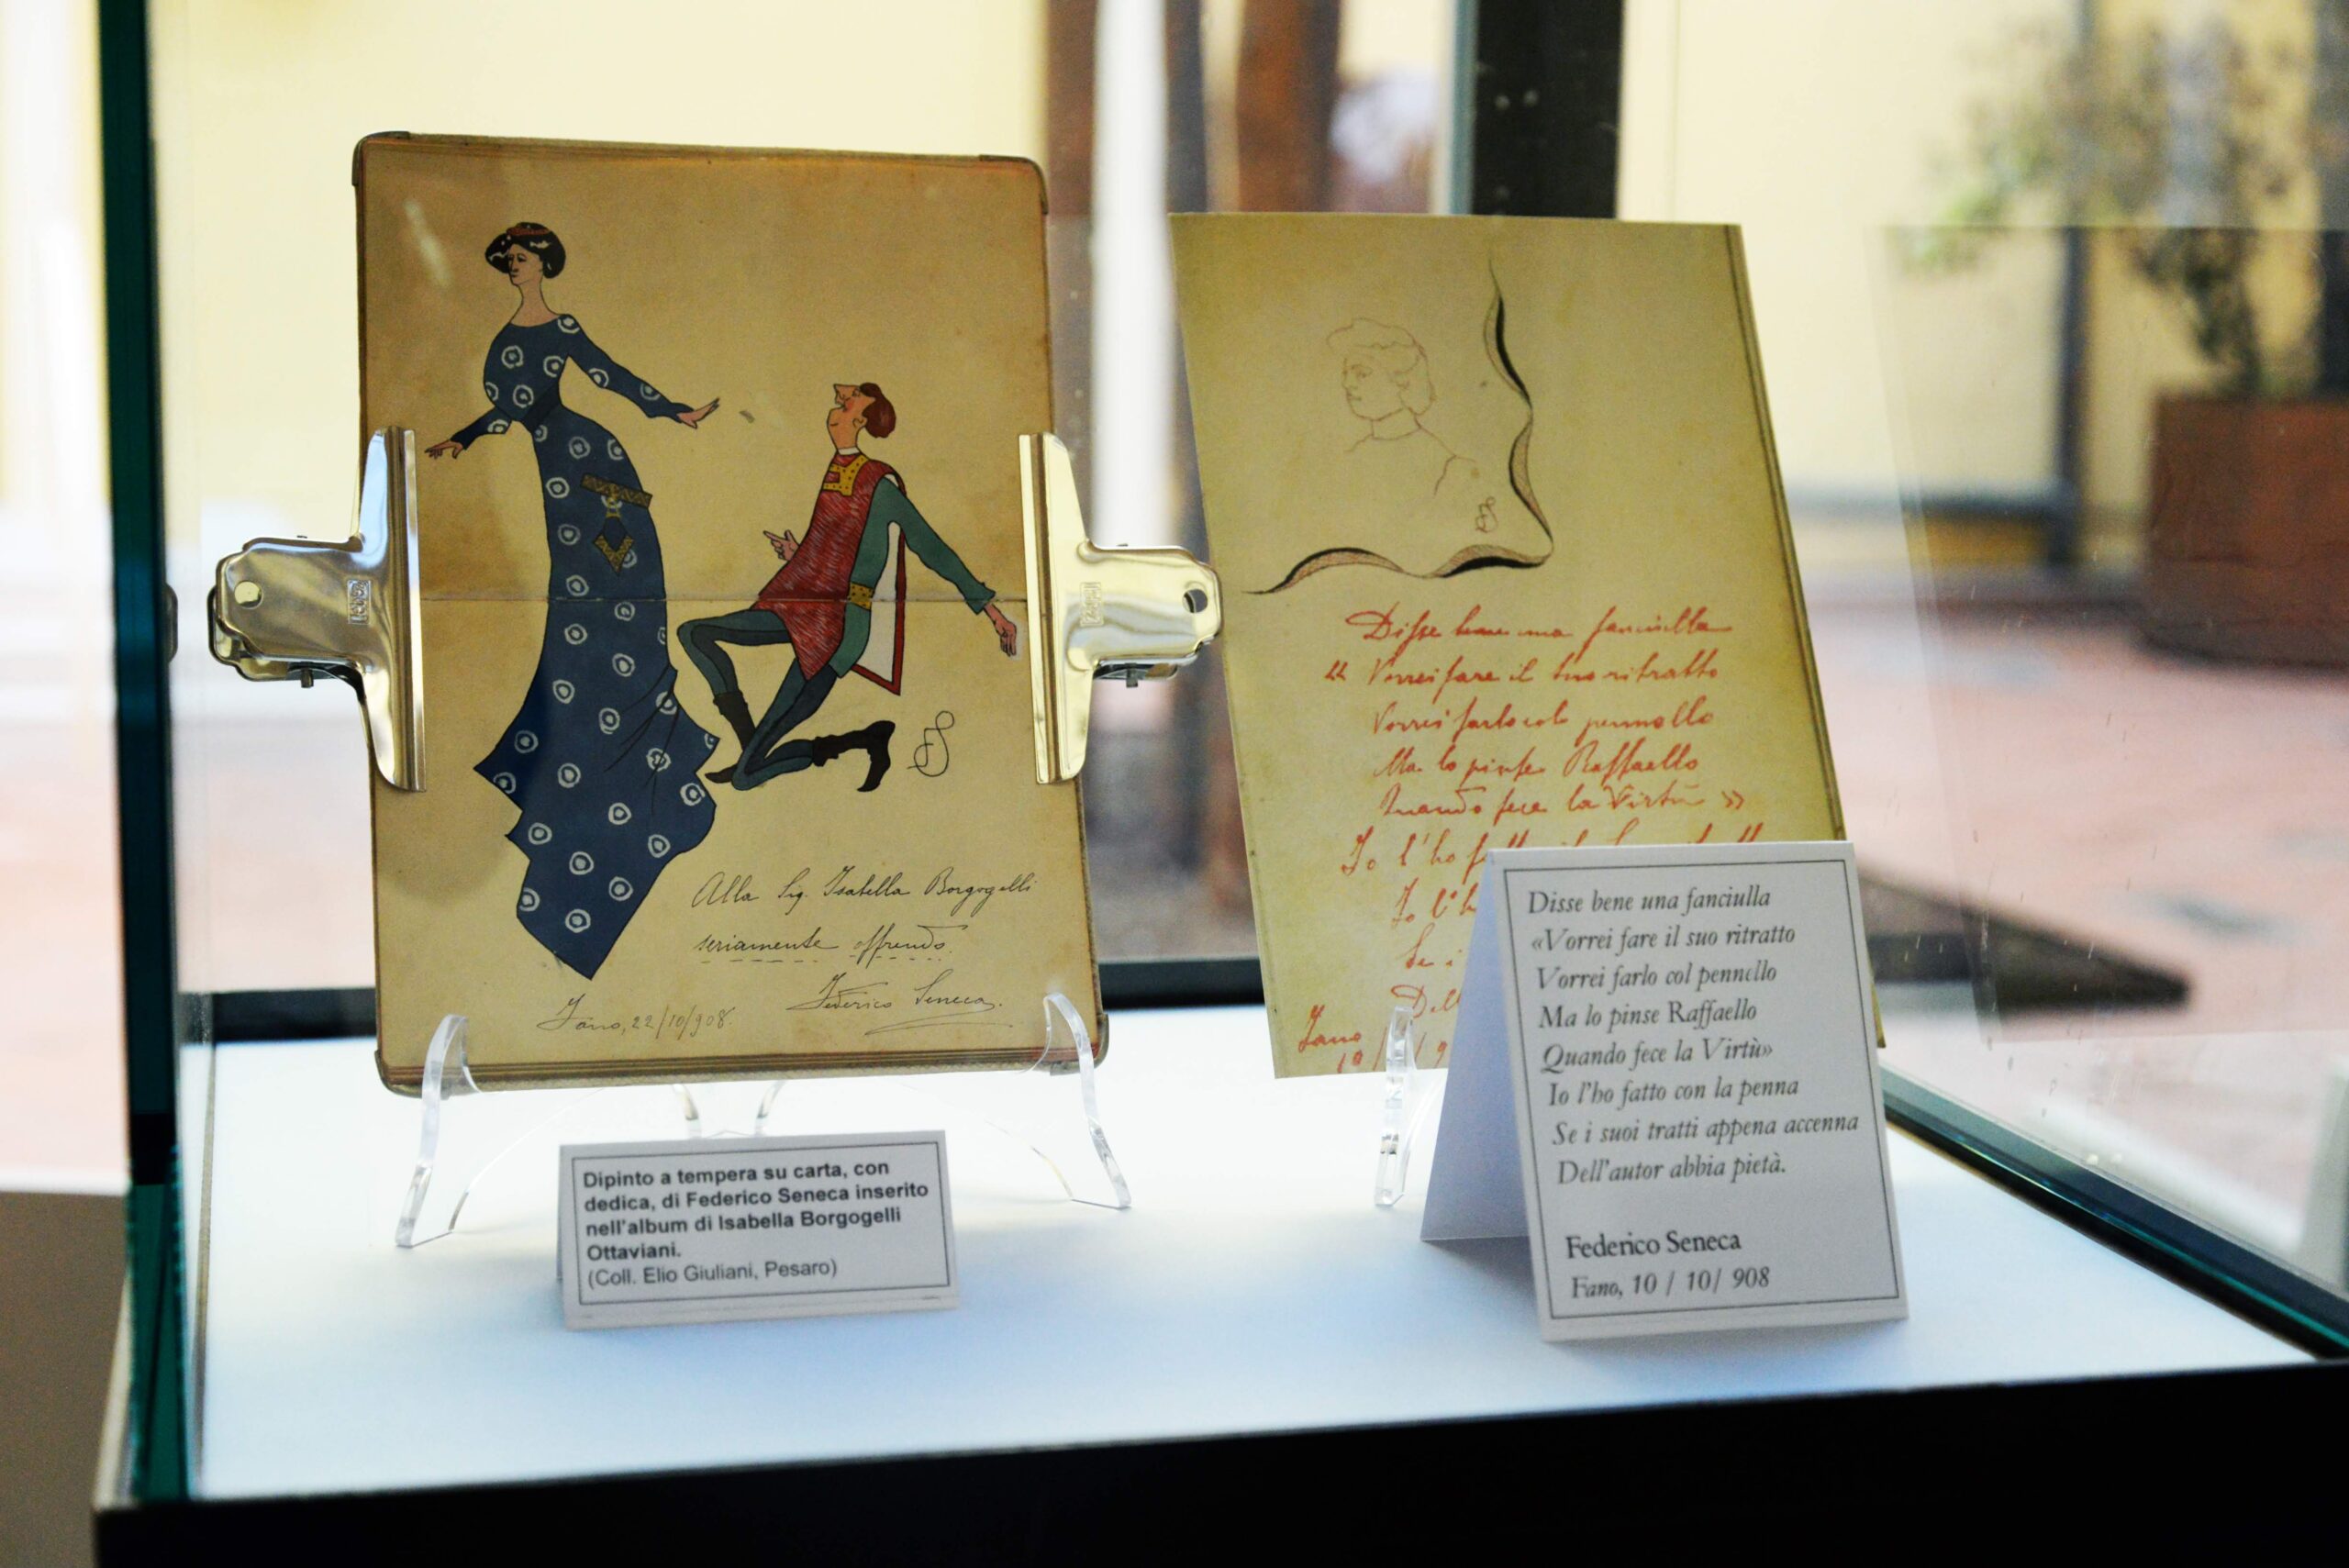 Alla Sig. Isabella Borgogelli
seriamente offrendo.
Federico Seneca.
Fano, 22/10/908.
Disse bene una fanciulla
« Vorrei fare il suo ritratto
Vorrei farlo col pennello
Ma lo pinse Raffaello
Quando fece la Virtù »
Io l'ho
Io l'h
Se i
Dell
Fano
10/
Dipinto a tempera su carta, con
dedica, di Federico Seneca inserito
nell'album di Isabella Borgogelli
Ottaviani.
(Coll. Elio Giuliani, Pesaro)
Disse bene una fanciulla
«Vorrei fare il suo ritratto
Vorrei farlo col pennello
Ma lo pinse Raffaello
Quando fece la Virtù»
Io l'ho fatto con la penna
Se i suoi tratti appena accenna
Dell'autor abbia pietà.
Federico Seneca
Fano, 10 / 10/ 908